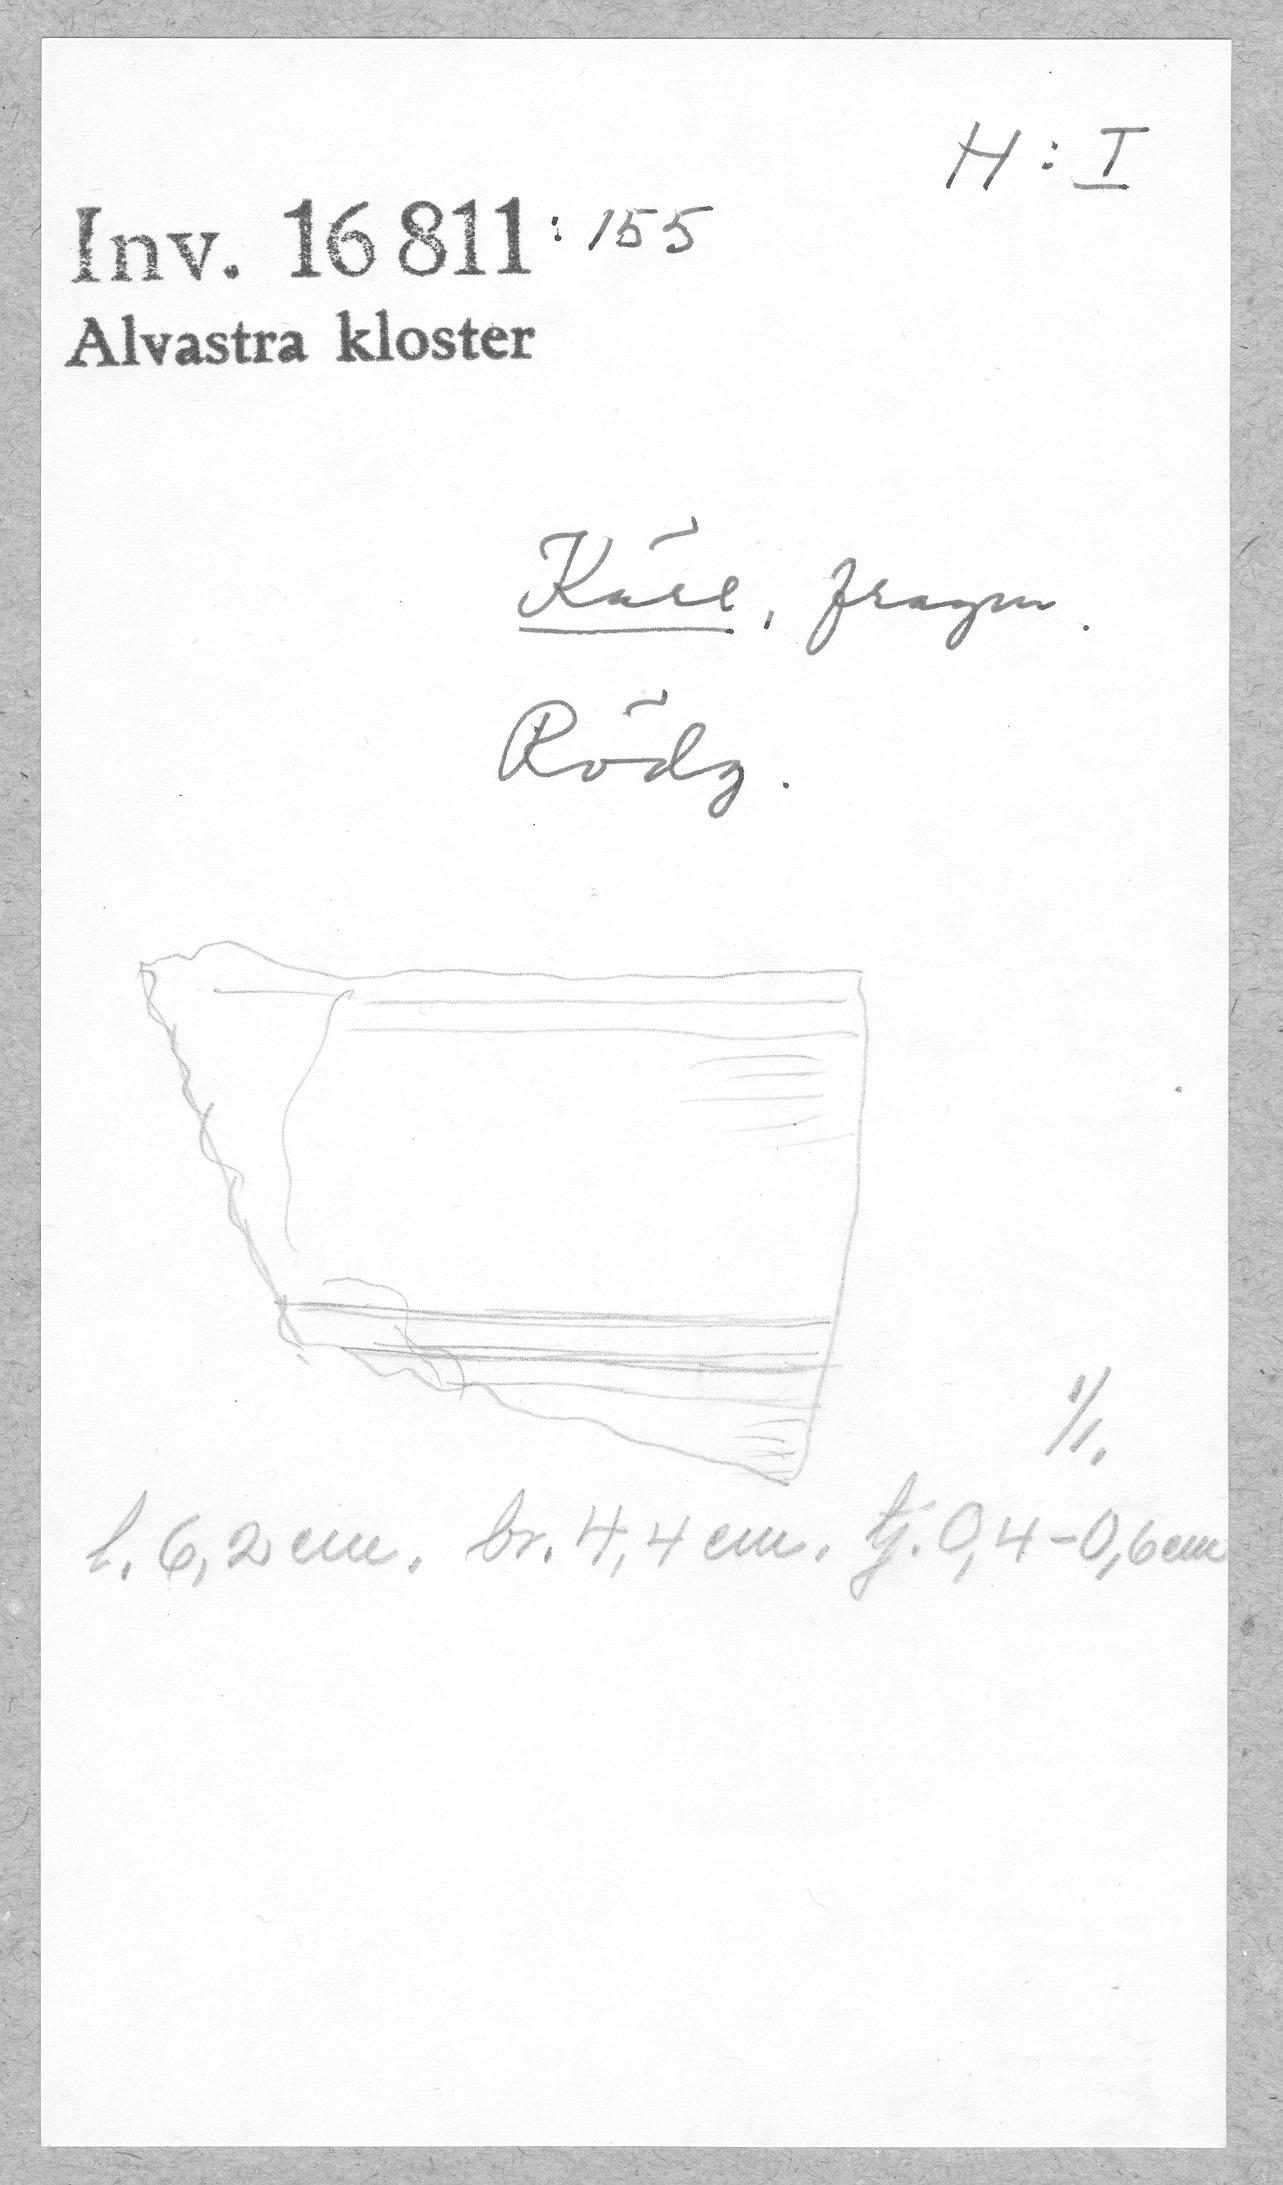 H : I
Inv. 16 811 : 155
Alvastra kloster
Kärl, fragm.
Rödg.
1/1.
l. 6,2 cm. br. 4,4 cm. tj. 0,4-0,6 cm